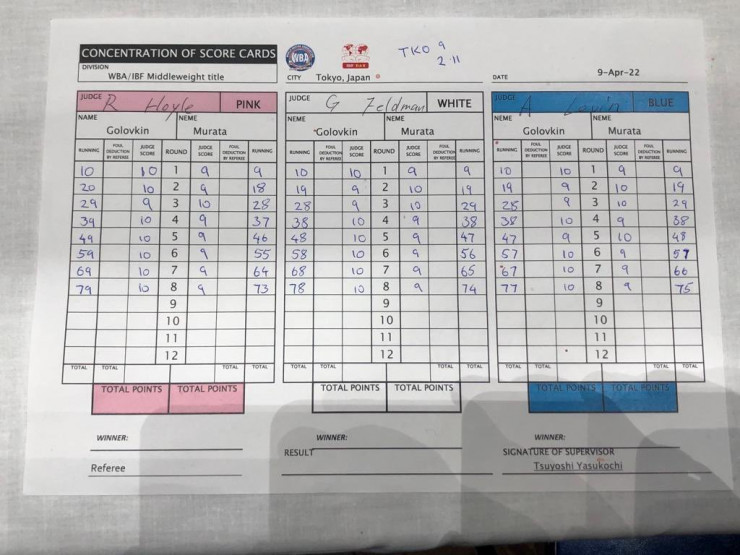 CONCENTRATION OF SCORE CARDS
DIVISION
WBA/IBF Middleweight title
WBA
CITY Tokyo, Japan
TKO 9
2:11
DATE 9-Apr-22
JUDGE R Hoyle PINK
NAME NEME
Golovkin Murata
RUNNING FOUL DEDUCTION BY REFEREE JUDGE SCORE ROUND JUDGE SCORE FOUL DEDUCTION BY REFEREE RUNNING
10 10 1 9 9
20 10 2 9 18
29 9 3 10 28
39 10 4 9 37
49 10 5 9 46
59 10 6 9 55
69 10 7 9 64
79 10 8 9 73
9
10
11
12
TOTAL TOTAL TOTAL TOTAL
TOTAL POINTS TOTAL POINTS
WINNER:
Referee
JUDGE G Feldman WHITE
NAME NEME
Golovkin Murata
RUNNING FOUL DEDUCTION BY REFEREE JUDGE SCORE ROUND JUDGE SCORE FOUL DEDUCTION BY REFEREE RUNNING
10 10 1 9 9
19 9 2 10 19
28 9 3 10 29
38 10 4 9 38
48 10 5 9 47
58 10 6 9 56
68 10 7 9 65
78 10 8 9 74
9
10
11
12
TOTAL TOTAL TOTAL TOTAL
TOTAL POINTS TOTAL POINTS
WINNER:
RESULT
JUDGE A BLUE
NEME NEME
Golovkin Murata
RUNNING FOUL DEDUCTION BY REFEREE JUDGE SCORE ROUND JUDGE SCORE FOUL DEDUCTION BY REFEREE RUNNING
10 10 1 9 9
19 9 2 10 19
28 9 3 10 29
38 10 4 9 38
47 9 5 10 48
57 10 6 9 57
67 10 7 9 66
77 10 8 9 75
9
10
11
12
TOTAL TOTAL TOTAL TOTAL
TOTAL POINTS TOTAL POINTS
WINNER:
SIGNATURE OF SUPERVISOR
Tsuyoshi Yasukochi